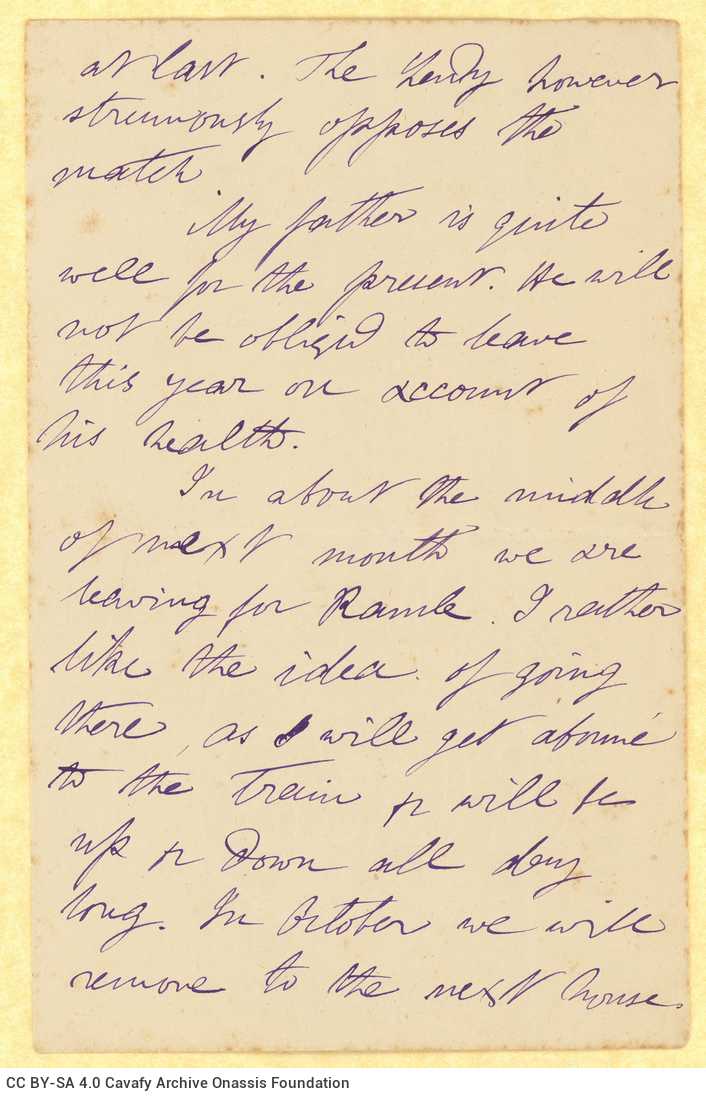 at last. The Lendy however
strenuously opposes the
match
My father is quite
well for the present. He will
not be obliged to leave
this year on account of
his health.
In about the middle
of next month we are
leaving for Ramle. I rather
like the idea of going
there, as I will get abonné
to the train & will be
up & down all day
long. In October we will
remove to the next house.
CC BY-SA 4.0 Cavafy Archive Onassis Foundation